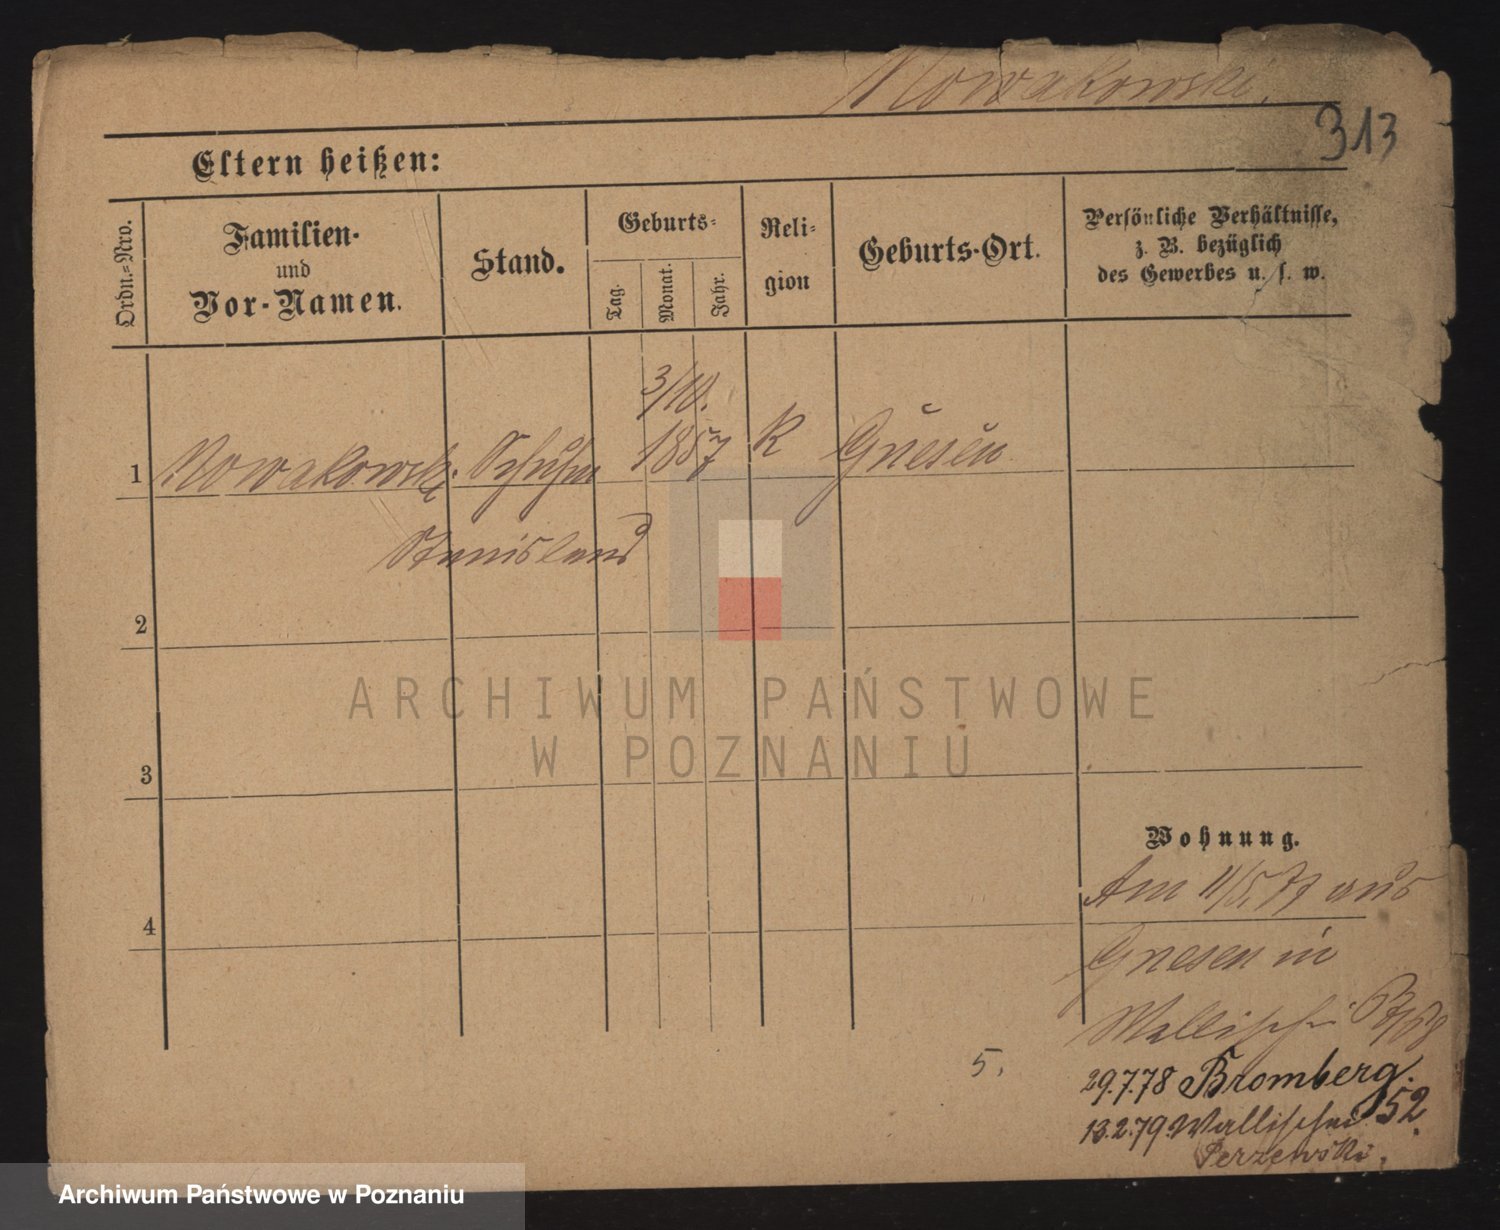 Nowakowski.
313
Eltern heißen:
Ordn.-Nro.
Familien-
und
Vor-Namen.
Stand.
Geburts-
Tag.
Monat.
Jahr.
Reli-
gion
Geburts-Ort.
Persönliche Verhältnisse,
z. B. bezüglich
des Gewerbes u. s. w.
3/10.
1 Nowakowski Schuhm 1857 K Gnesen
Stanislaus
2
3
4
Wohnung.
Am 11/5. 77 aus
Gnesen in
Wallischei
5.
29.7.78 Bromberg.
13.2.79. Wallischei 52.
Perzewski.
ARCHIWUM PAŃSTWOWE
W POZNANIU
Archiwum Państwowe w Poznaniu